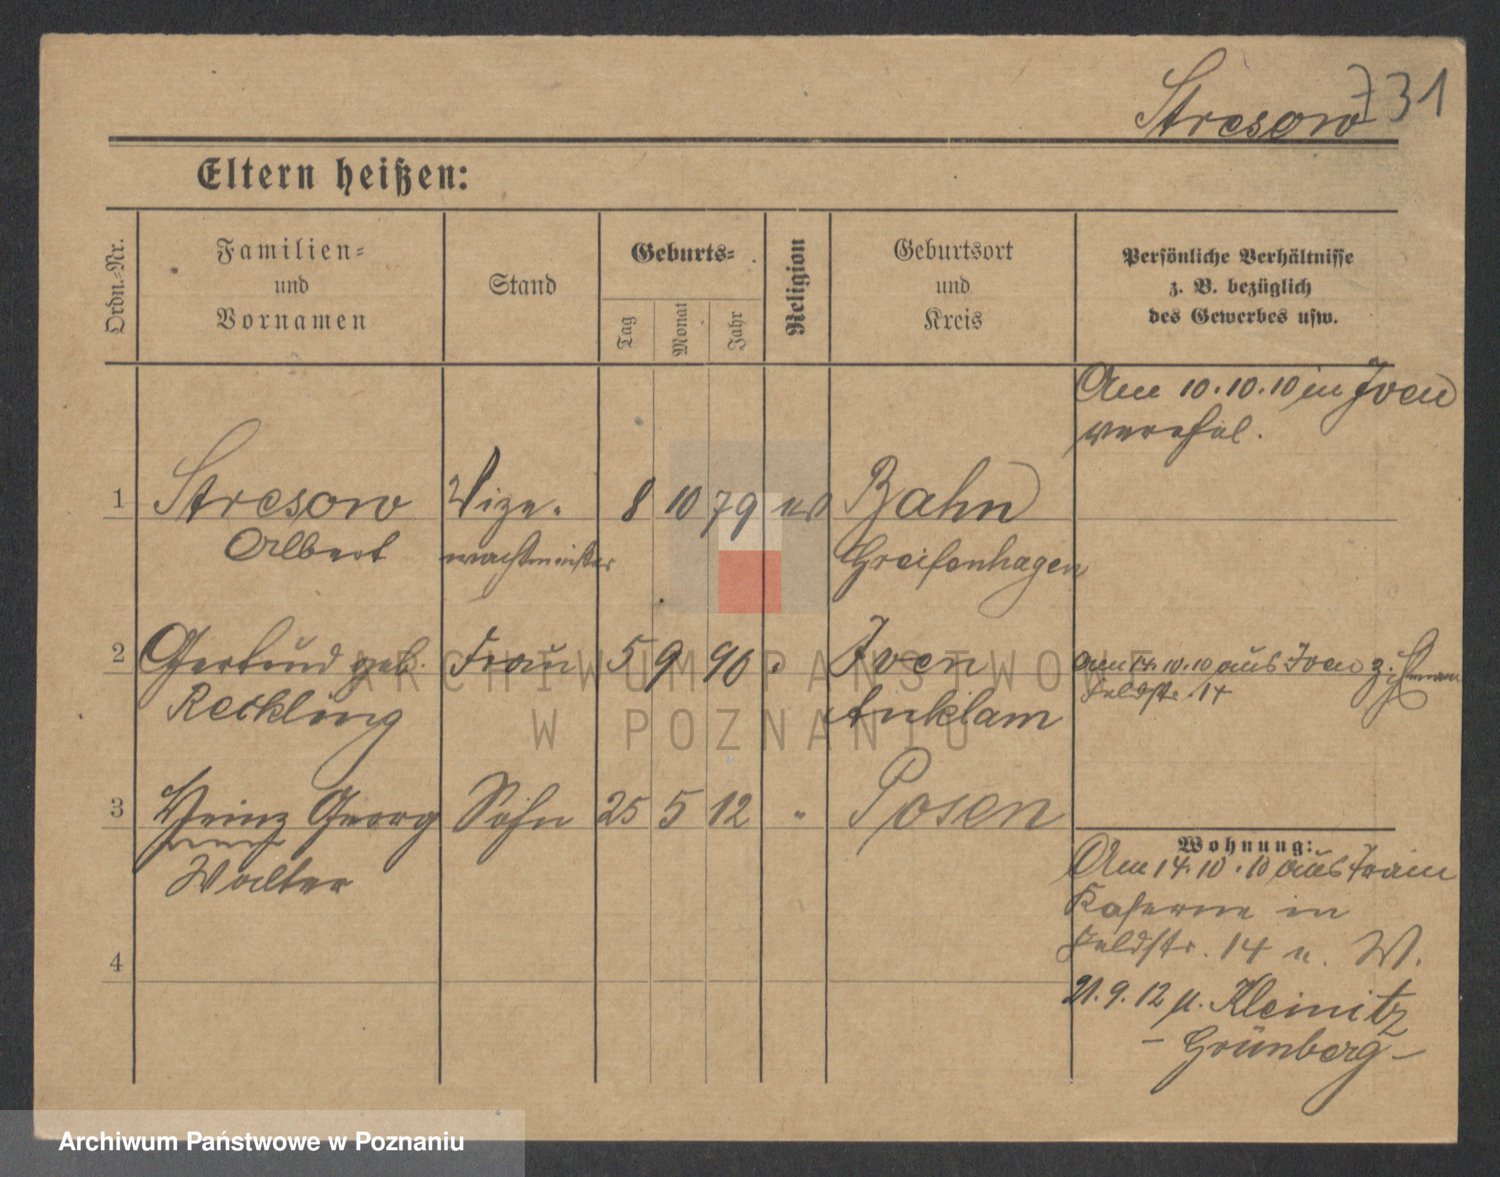 Stresow 731
Eltern heißen:
Ordn.-Nr.
Familien-
und
Vornamen
Stand
Geburts-
Tag
Monat
Jahr
Religion
Geburtsort
und
Kreis
Persönliche Verhältnisse
z. B. bezüglich
des Gewerbes usw.
Am 10.10.10 in Iven
verehel.
1 Stresow Vize- 8 10 79 ev Bahn
Albert wachtmeister Greifenhagen
2 Gertrud geb. Frau 5 9 90 " Iven
Reckling Anklam
am 14.10.10 aus Iven z.
Feldstr. 14
3 Heinz Georg Sohn 25 5 12 " Posen
Walter
4
Wohnung:
Am 14.10.10 aus Train
Kaserne in
Feldstr. 14 u. W.
21.9.12 n. Kleinitz
- Grünberg -
ARCHIWUM PAŃSTWOWE
W POZNANIU
Archiwum Państwowe w Poznaniu